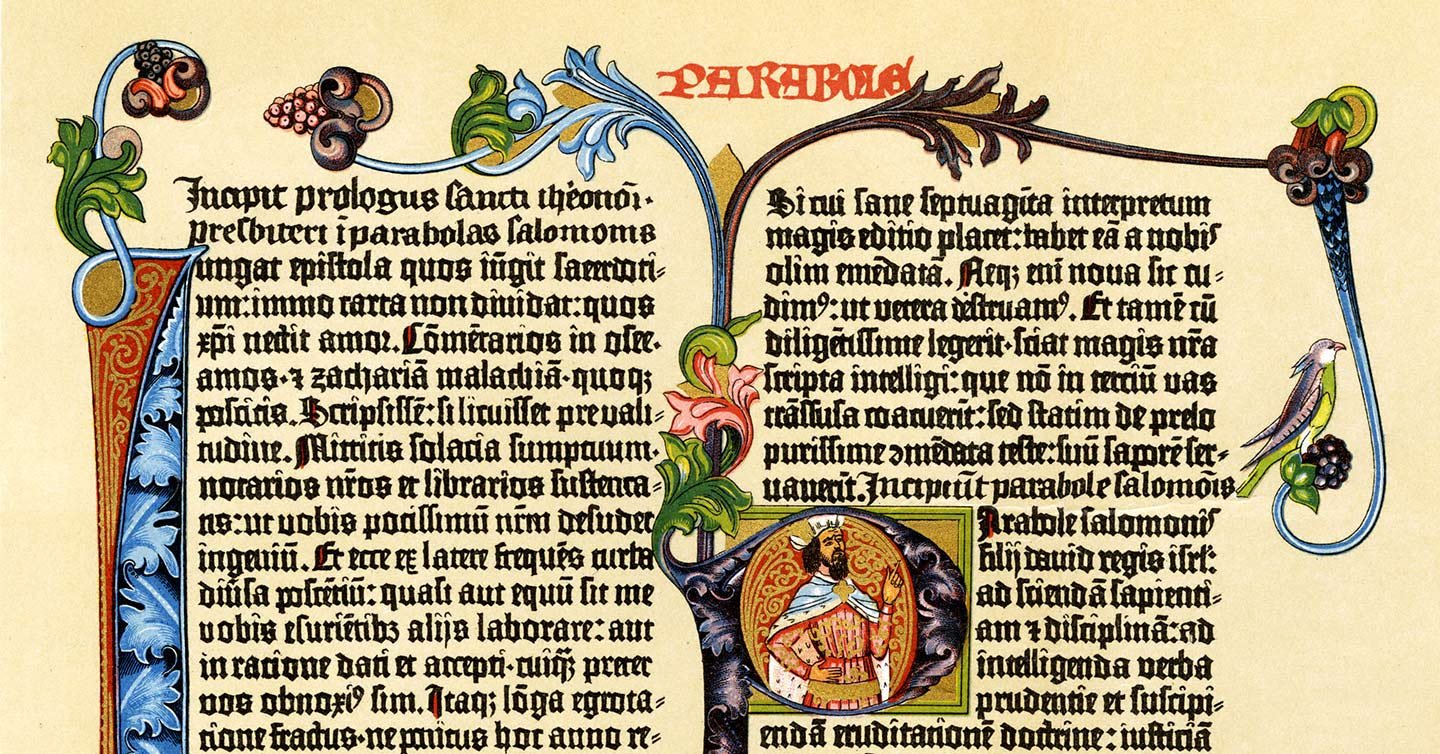 PARABOLE
Incipit prologus sancti iheronimi
presbiteri ī parabolas salomonis
Iungat epistola quos iūgit sacerdoti=
um: immo carta non dividat: quos
xp̄i nectit amor. Cōmētarios in osee·
amos· ⁊ zachariā malachiā· quoqꝫ
poscitis. Scripsissē: si licuisset pre vali=
tudine. Mittitis solacia sumptuum·
notarios nr̄os et librarios sustenta=
tis: ut vobis potissimū nr̄m desudet
ingeniū. Et ecce ex latere frequēs turba
diūsa poscētiū: quasi aut equū sit me
vobis esuriētibꝫ alijs laborare: aut
in ratione dati et accepti· cuiqꝫ preter
vos obnoxiꝰ sim. Itaqꝫ lōga egrota=
tione fractus· ne penitus hoc anno re=
Si cui sane septuagīta interpretum
magis editio placet: habet eā a nobis
olim emēdatā. Neqꝫ enī nova sic cu=
dimꝰ: ut vetera destruamꝰ. Et tamē cū
diligētissime legerit· sciat magis nr̄a
scripta intelligi: que nō in terciū vas
trāsfusa coacuerīt: sed statim de prelo
purissime ꝯmēdata teste: suū saporē ser=
vaverīt. Incipiūt parabole salomōis
Parabole salomonis
filij david regis isrl̄:
ad sciendā sapienti=
am ⁊ disciplinā: ad
intelligenda verba
prudentie et suscipi=
endā eruditationē doctrine: iusticiā